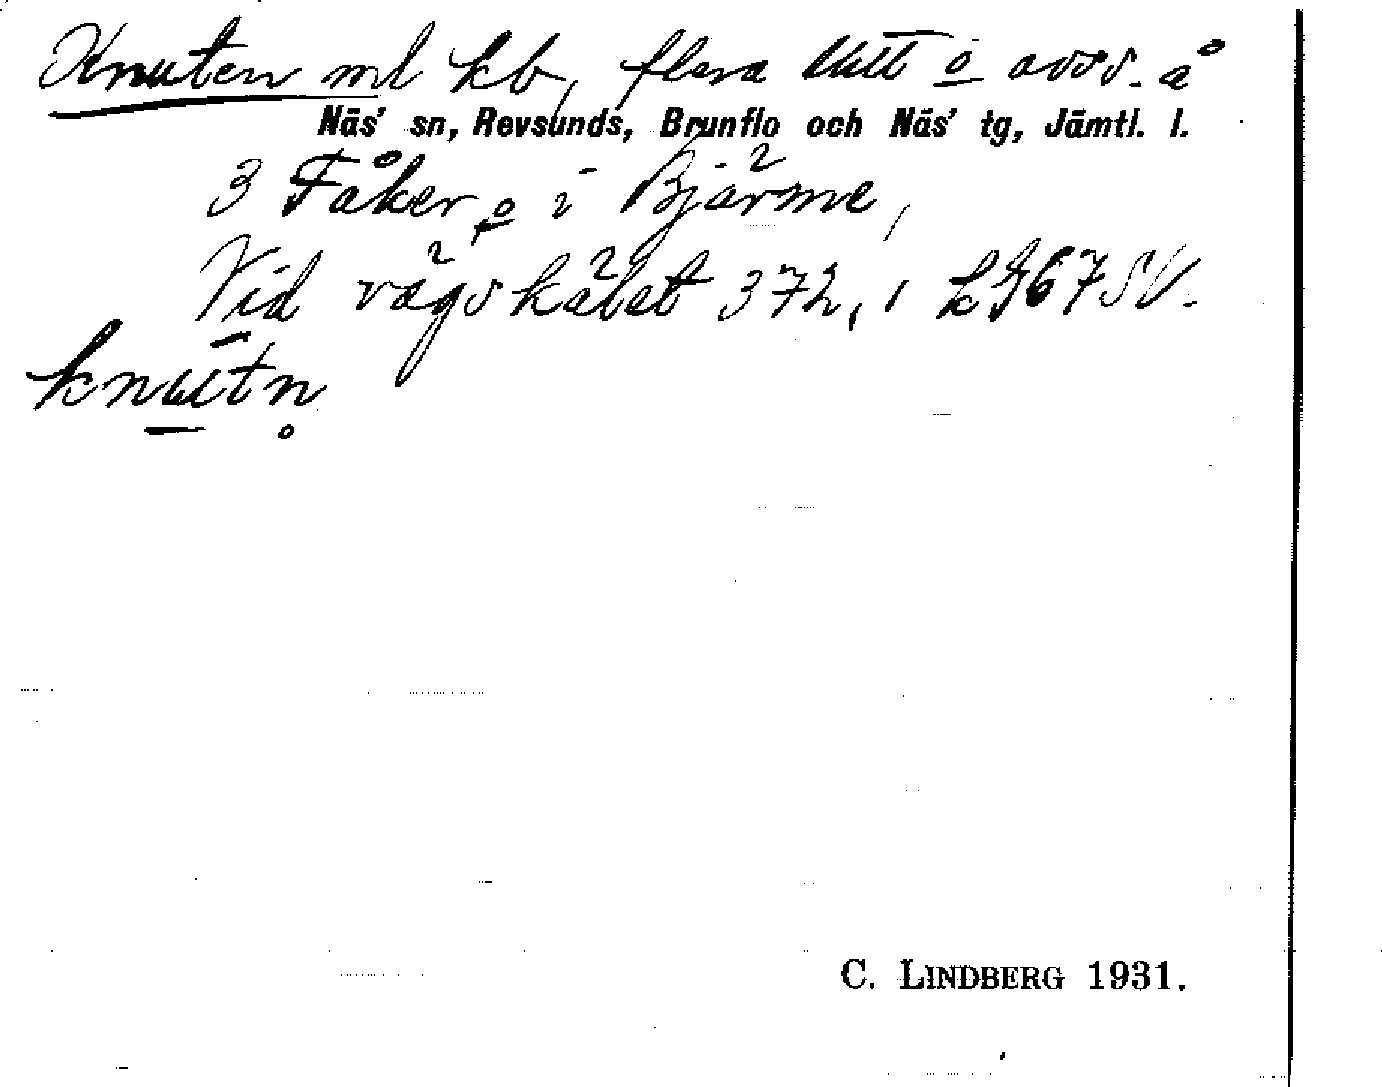 Knuten ml kb, flera hitt o avsv. å
Näs' sn, Revsunds, Brunflo och Näs' tg, Jämtl. l.
3 Fåker, o i Bjärme,
Vid vägskälet 372, i SV.
knutn
C. LINDBERG 1931.